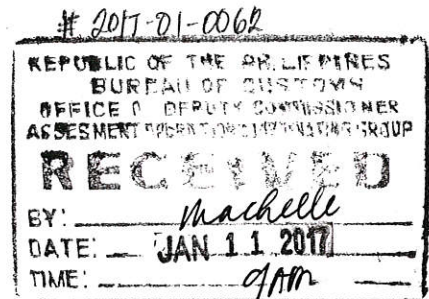 # 2017-01-0062
REPUBLIC OF THE PHILIPPINES
BUREAU OF CUSTOMS
OFFICE OF DEPUTY COMMISSIONER
ASSESMENT OPERATIONS COORDINATING GROUP
RECEIVED
BY: Machelle
DATE: JAN 11 2017
TIME: 9AM